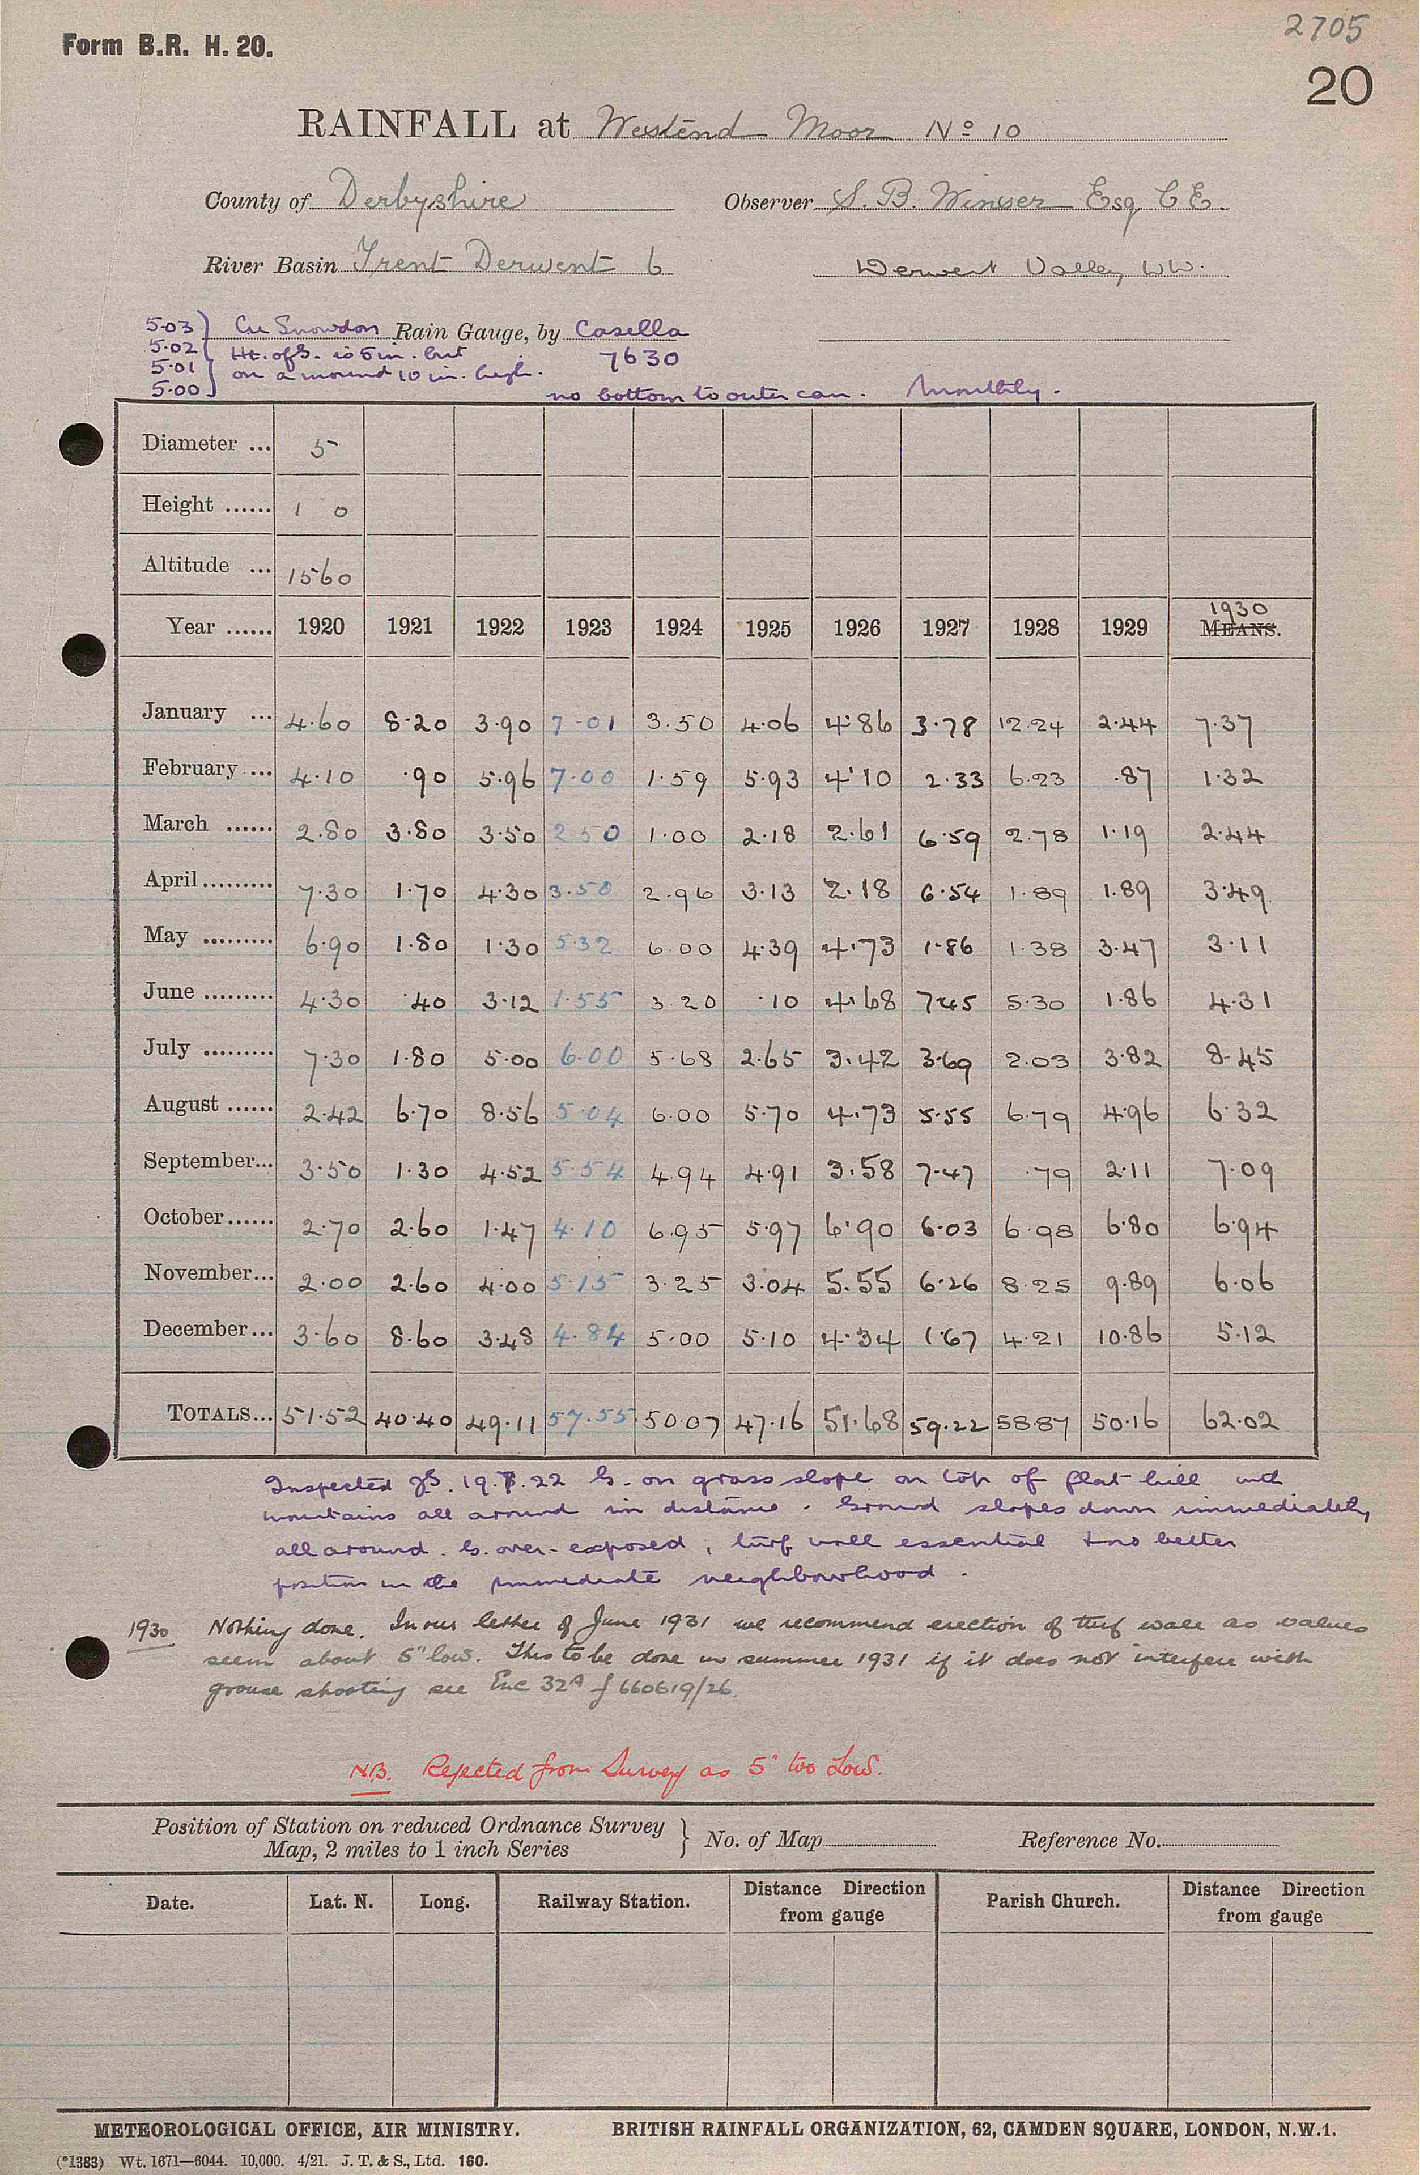 2705
Form B.R. H. 20.
20
RAINFALL at Westend Moor No 10
County of Derbyshire Observer S. B. Winser Esq C E
River Basin Trent Derwent 6 Derwent Valley WW.
5.03 Cu Snowdon Rain Gauge, by Casella
5.02 Ht. of G. is 5 in. but 7630
5.01 on a mound 10 in. high.
5.00 no bottom to outer can. Monthly.
Diameter ... 5
Height ...... 1 0
Altitude ... 1560
1930
Year ...... 1920 1921 1922 1923 1924 1925 1926 1927 1928 1929 MEANS.
January ... 4.60 8.20 3.90 7.01 3.50 4.06 4.86 3.78 12.24 2.44 7.37
February ... 4.10 .90 5.96 7.00 1.59 5.93 4.10 2.33 6.23 .87 1.32
March ...... 2.80 3.80 3.50 2.50 1.00 2.18 2.61 6.59 2.78 1.19 2.44
April ......... 7.30 1.70 4.30 3.50 2.96 3.13 2.18 6.54 1.89 1.89 3.49
May ......... 6.90 1.80 1.30 5.32 6.00 4.39 4.73 1.86 1.38 3.47 3.11
June ......... 4.30 .40 3.12 1.55 3.20 .10 4.68 7.45 5.30 1.86 4.31
July ......... 7.30 1.80 5.00 6.00 5.68 2.65 3.42 3.69 2.03 3.82 8.45
August ...... 2.42 6.70 8.56 5.04 6.00 5.70 4.73 5.55 6.79 4.96 6.32
September... 3.50 1.30 4.52 5.54 4.94 4.91 3.58 7.47 .79 2.11 7.09
October...... 2.70 2.60 1.47 4.10 6.95 5.97 6.90 6.03 6.98 6.80 6.94
November... 2.00 2.60 4.00 5.15 3.25 3.04 5.55 6.26 8.25 9.89 6.06
December... 3.60 8.60 3.48 4.84 5.00 5.10 4.34 1.67 4.21 10.86 5.12
TOTALS... 51.52 40.40 49.11 57.55 50.07 47.16 51.68 59.22 58.87 50.16 62.02
Inspected 19.7.22 G. on grass slope on top of flat hill with
mountains all around in distance. Ground slopes down immediately
all around. G. over-exposed; turf wall essential & no better
position in the immediate neighbourhood.
1930 Nothing done. In our letter of June 1931 we recommend erection of turf wall as values
seem about 5" low. This to be done in summer 1931 if it does not interfere with
grouse shooting see Enc 32A f 660619/26.
NB. Rejected from Survey as 5" too Low.
Position of Station on reduced Ordnance Survey
Map, 2 miles to 1 inch Series } No. of Map Reference No.
Date. Lat. N. Long. Railway Station. Distance Direction from gauge Parish Church. Distance Direction from gauge
METEOROLOGICAL OFFICE, AIR MINISTRY. BRITISH RAINFALL ORGANIZATION, 62, CAMDEN SQUARE, LONDON, N.W.1.
(*1383) Wt. 1671—6044. 10,000. 4/21. J. T. & S., Ltd. 160.